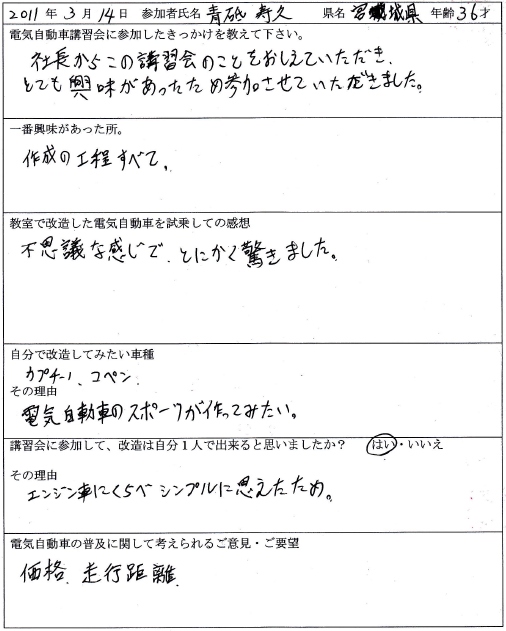 2011 年 3 月 14 日 参加者氏名 青砥 寿久 県名 宮城県 年齢 36 才
電気自動車講習会に参加したきっかけを教えて下さい。
社長からこの講習会のことをおしえていただき、
とても興味があったため参加させていただきました。
一番興味があった所。
作成の工程すべて。
教室で改造した電気自動車を試乗しての感想
不思議な感じで、とにかく驚きました。
自分で改造してみたい車種
カプチーノ、コペン
その理由
電気自動車のスポーツが作ってみたい。
講習会に参加して、改造は自分1人で出来ると思いましたか? はい・いいえ
その理由
エンジン車にくらべシンプルに思えたため。
電気自動車の普及に関して考えられるご意見・ご要望
価格、走行距離